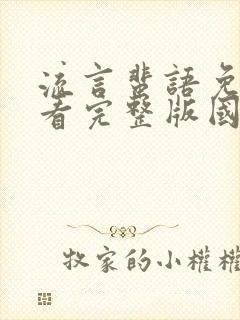 流言蜚語免
看完整版國
牧家的小權權